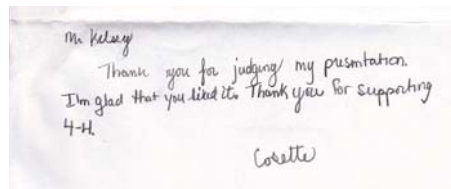 Mr. Kelsey
Thank you for judging my presntation.
I'm glad that you liked it. Thank you for supporting
4-H.
Cosette